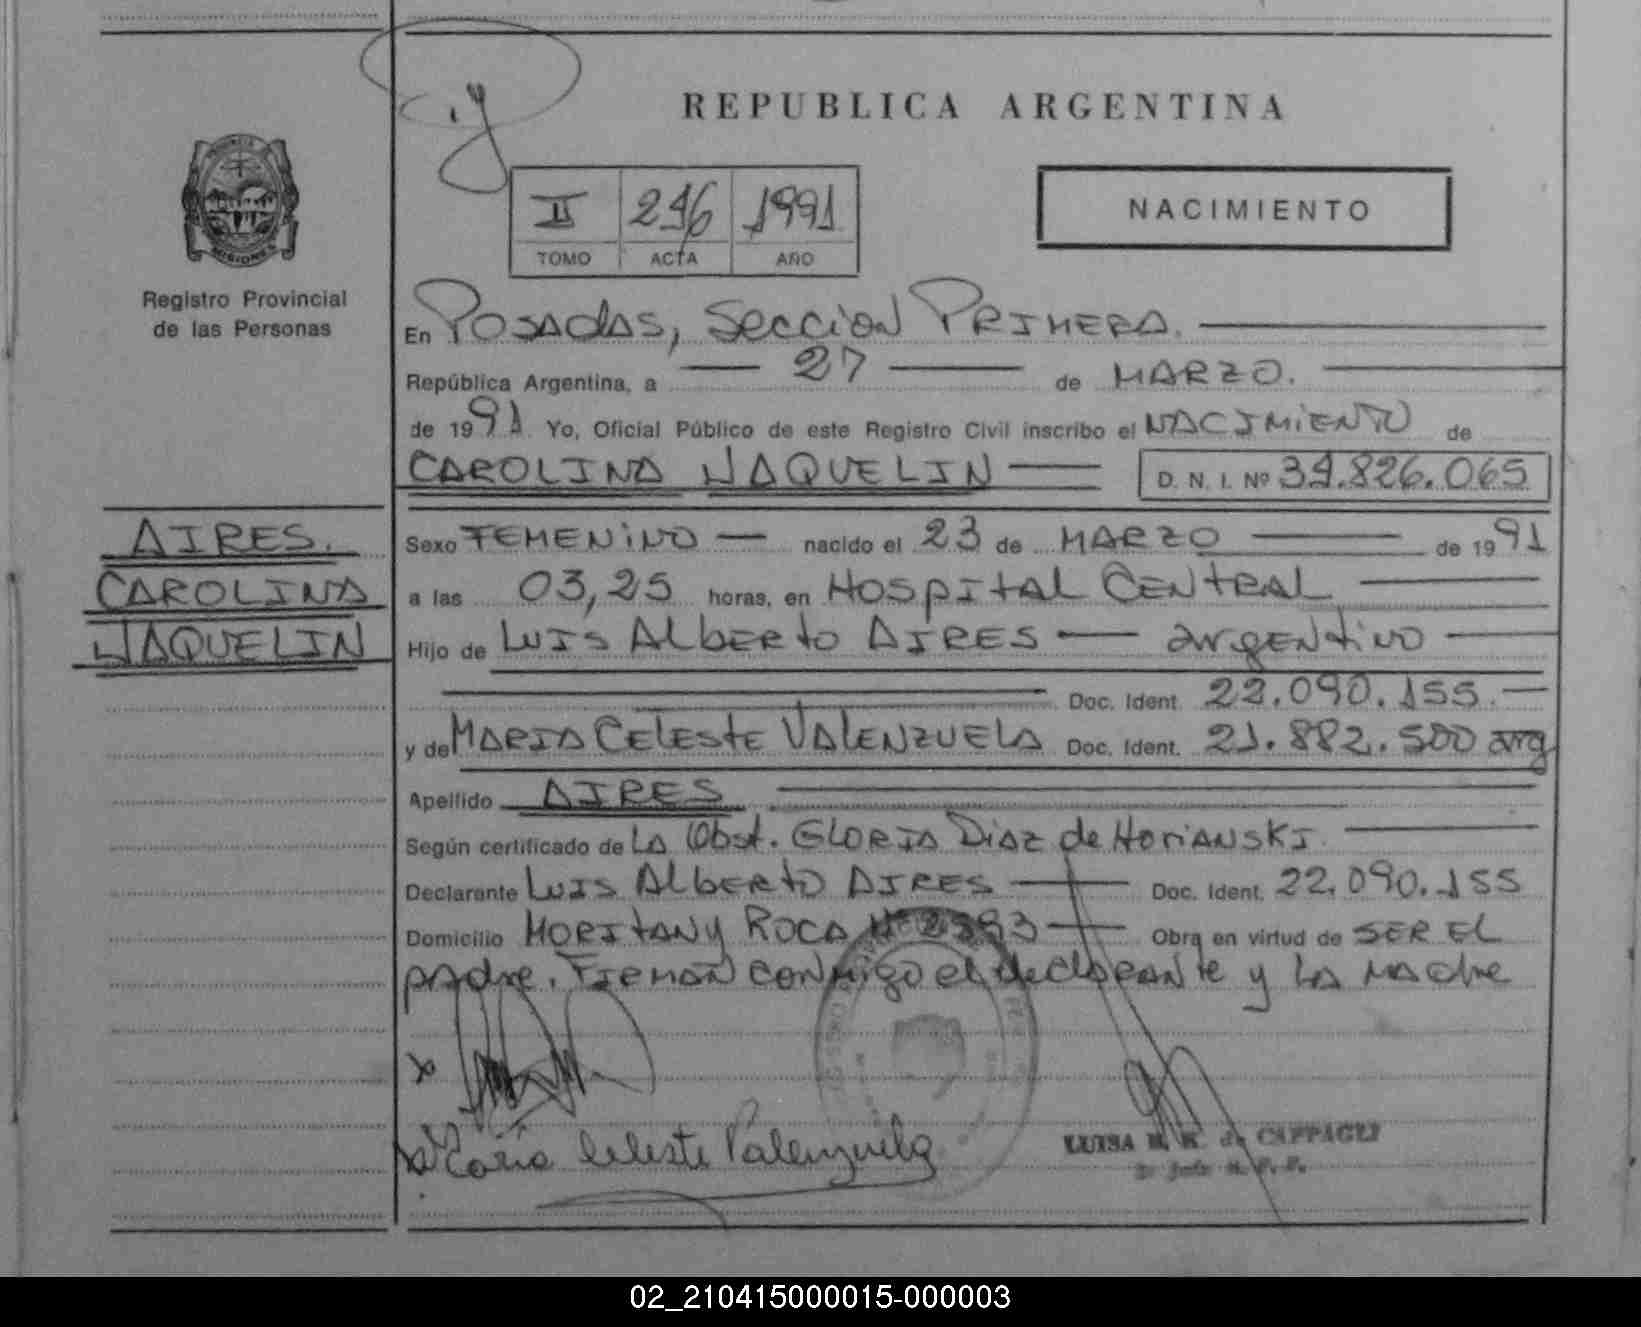 REPUBLICA ARGENTINA
II 246 1991
TOMO ACTA AÑO
NACIMIENTO
Registro Provincial
de las Personas
En POSADAS, SECCION PRIMERA.
República Argentina, a 27 de MARZO.
de 1991 Yo, Oficial Público de este Registro Civil inscribo el NACIMIENTO de
CAROLINA JAQUELIN D. N. I. Nº
AIRES.
CAROLINA
JAQUELIN
Sexo FEMENINO nacido el 23 de MARZO de 1991
a las 03,25 horas, en HOSPITAL CENTRAL
Hijo de LUIS ALBERTO AIRES argentino
Doc. Ident. 22.090.155.
y de MARIA CELESTE VALENZUELA Doc. Ident. 21.882.500 arg
Apellido AIRES
Según certificado de LA Obst. GLORIA DIAZ de HORIANSKI.
Declarante LUIS ALBERTO AIRES Doc. Ident. 22.090.155
Domicilio MORITAN y ROCA Nº Obra en virtud de SER EL
padre. FIRMAN conmigo el declarante y LA MADRE
Maria Celeste Valenzuela
LUISA de CAPPAGLI
02_210415000015-000003